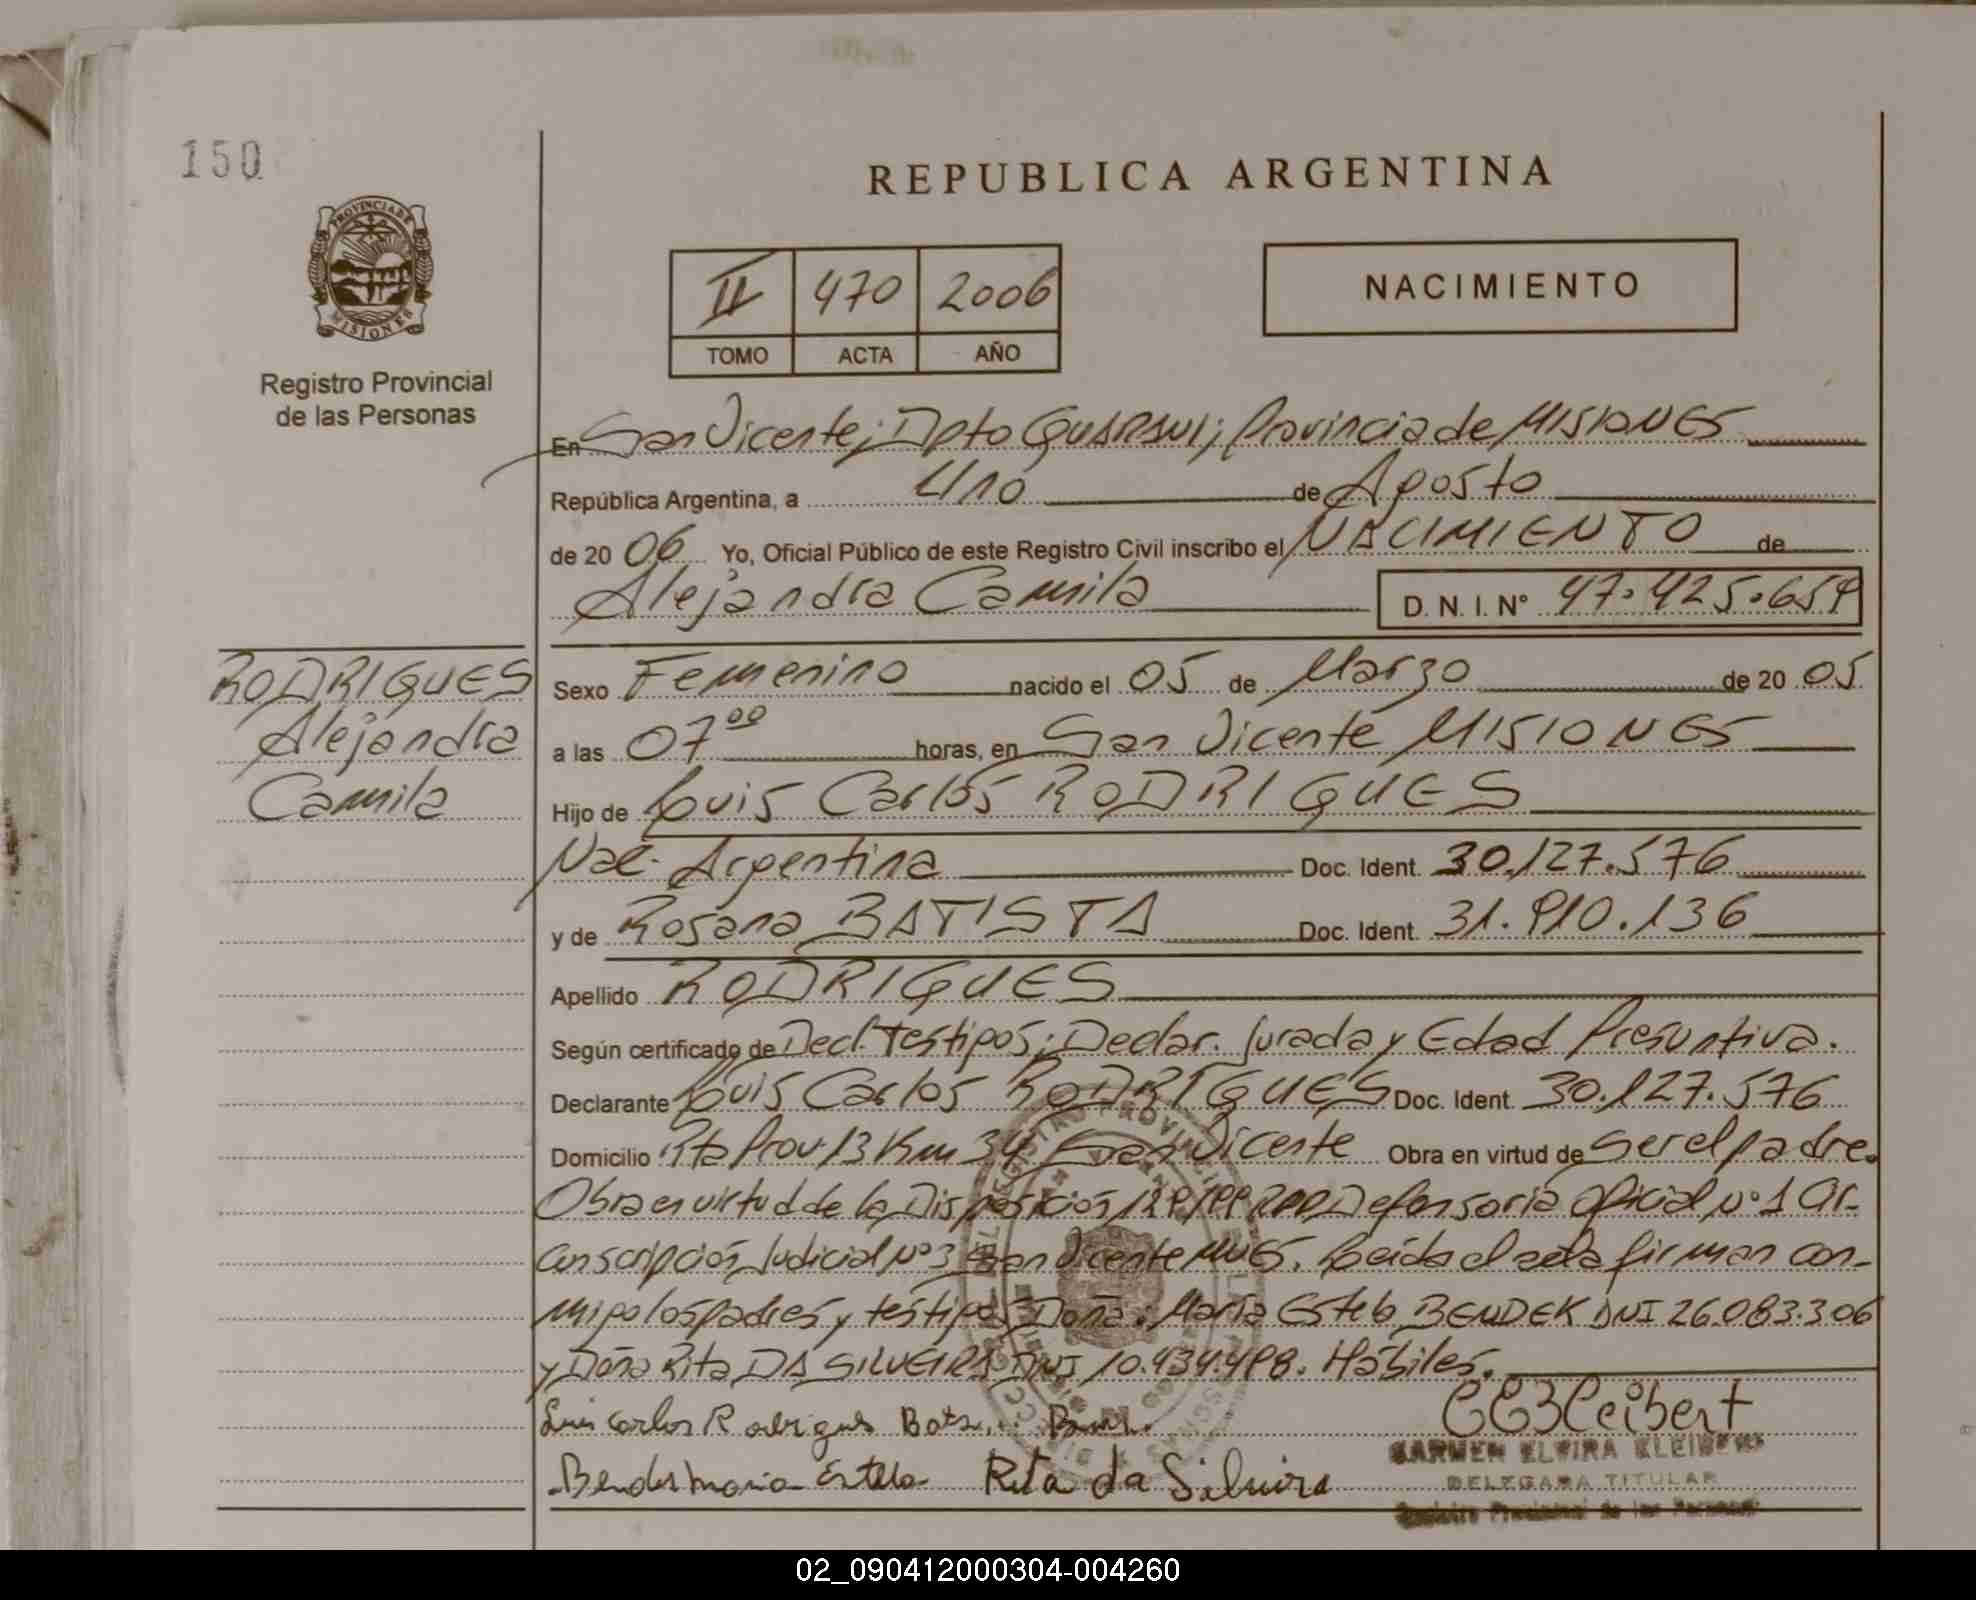 150
REPUBLICA ARGENTINA
PROVINCIA DE
MISIONES
Registro Provincial
de las Personas
II 470 2006
TOMO ACTA AÑO
NACIMIENTO
En San Vicente; Dpto Guarani; Provincia de MISIONES
República Argentina, a Uno de Agosto
de 20 06 Yo, Oficial Público de este Registro Civil inscribo el NACIMIENTO de
Alejandra Camila D. N. I. Nº 47.425.659
RODRIGUES
Alejandra
Camila
Sexo Femenino nacido el 05 de Marzo de 20 05
a las 07⁰⁰ horas, en San Vicente MISIONES
Hijo de Luis Carlos RODRIGUES
Nac. Argentina Doc. Ident. 30.127.576
y de Rosana BATISTA Doc. Ident. 31.910.136
Apellido RODRIGUES
Según certificado de Decl. Testigos; Declar. Jurada y Edad Presuntiva.
Declarante Luis Carlos RODRIGUES Doc. Ident. 30.127.576
Domicilio Rta Prov. 13 Km 34 San Vicente Obra en virtud de ser el padre.
Obra en virtud de la Disposición Defensoria Oficial Nº 1 Cir-
cunscripción Judicial Nº 3 San Vicente Mnes. Leida el acta firman con-
migo los padres y testigos Doña: Maria Estela BENDEK DNI 26.083.306
y Doña Rita DA SILVEIRA DNI 10.434.498. Hábiles.
Luis Carlos Rodrigues
CE3Cleibert
CARMEN ELVIRA KLEIBERT
DELEGADA TITULAR
Registro Provincial de las Personas
Bendek maria Estela Rita da Silveira
02_090412000304-004260